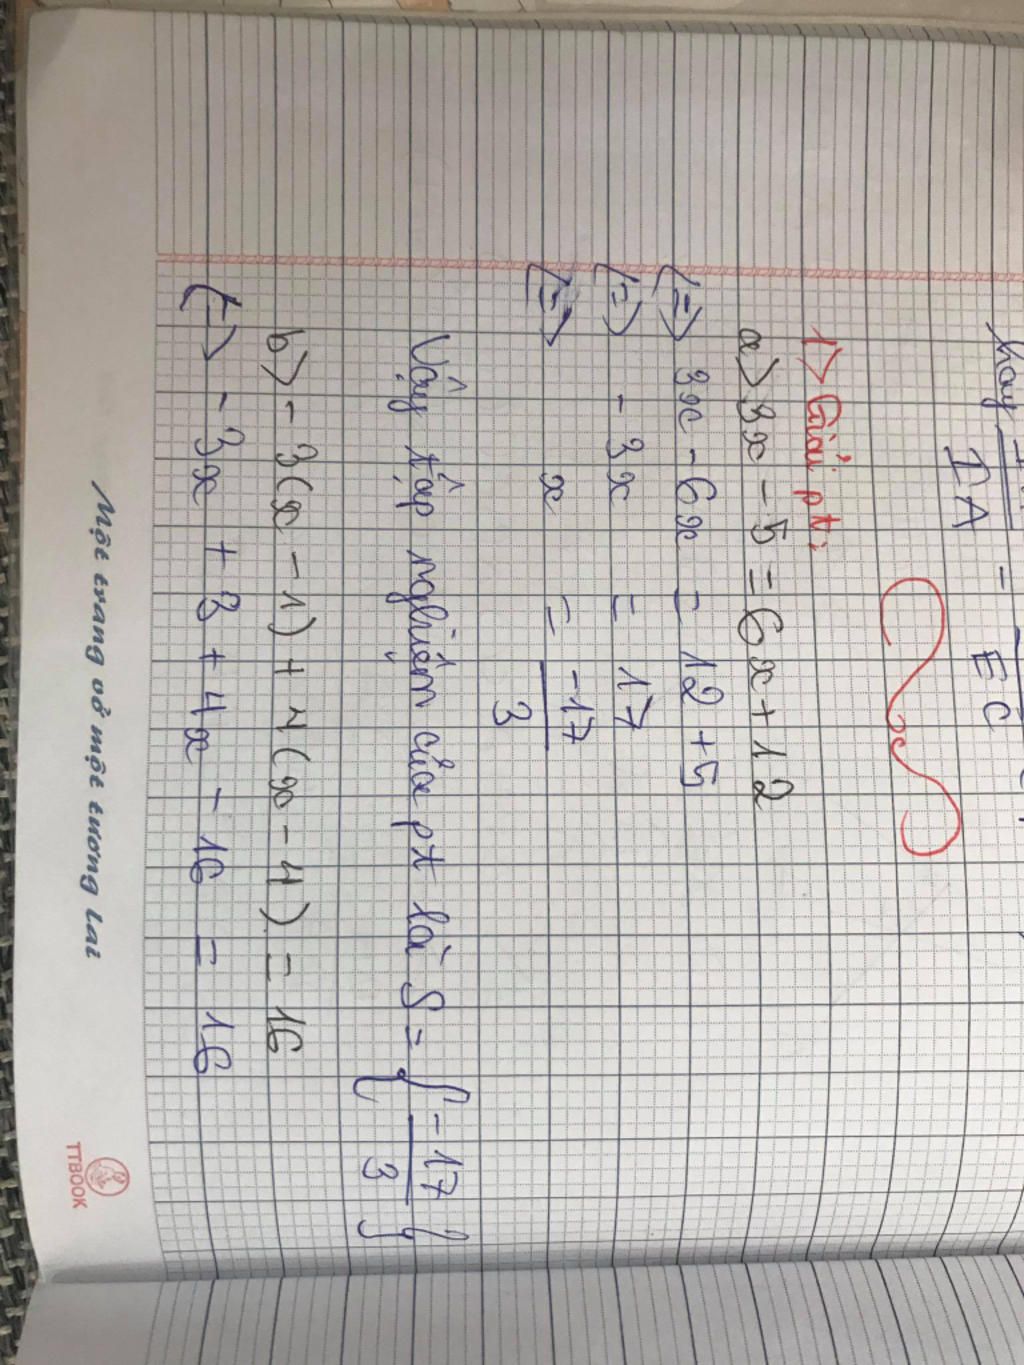 hay
IA = EC
1> Giải pt:
a> 3x - 5 = 6x + 12
<=> 3x - 6x = 12 + 5
<=> - 3x = 17
<=> x = -17/3
Vậy tập nghiệm của pt là S = {-17/3}
b> - 3(x - 1) + 4(x - 4) = 16
<=> - 3x + 3 + 4x - 16 = 16
Một trang vở một tương lai
TTBOOK